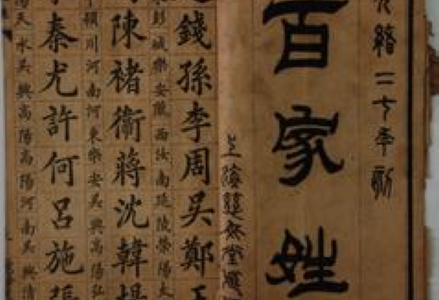 緒二十年
百家姓
上海堂
錢孫李周吳鄭王
彭城樂安隴西汝南延陵滎陽太
陳褚衛蔣沈韓楊
潁川河南河東樂安吳興高陽弘
秦尤許何呂施張
天水吳興高陽高陽河南吳興清